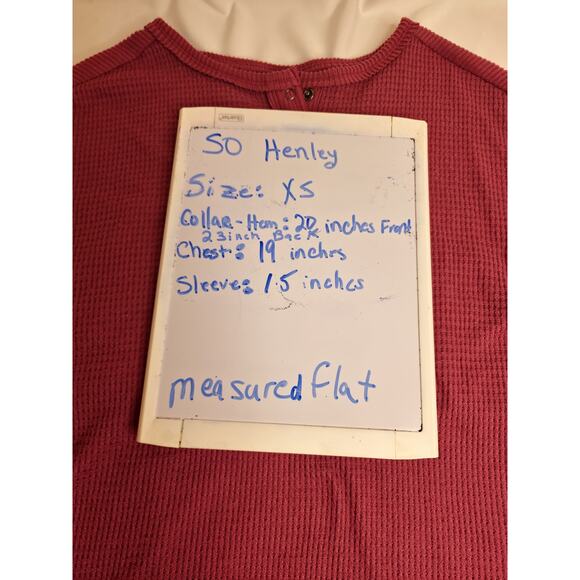 SO Henley
Size: XS
Collar-Hem: 20 inches Front
23inch Back
Chest: 19 inches
Sleeve: 15 inches
measured flat